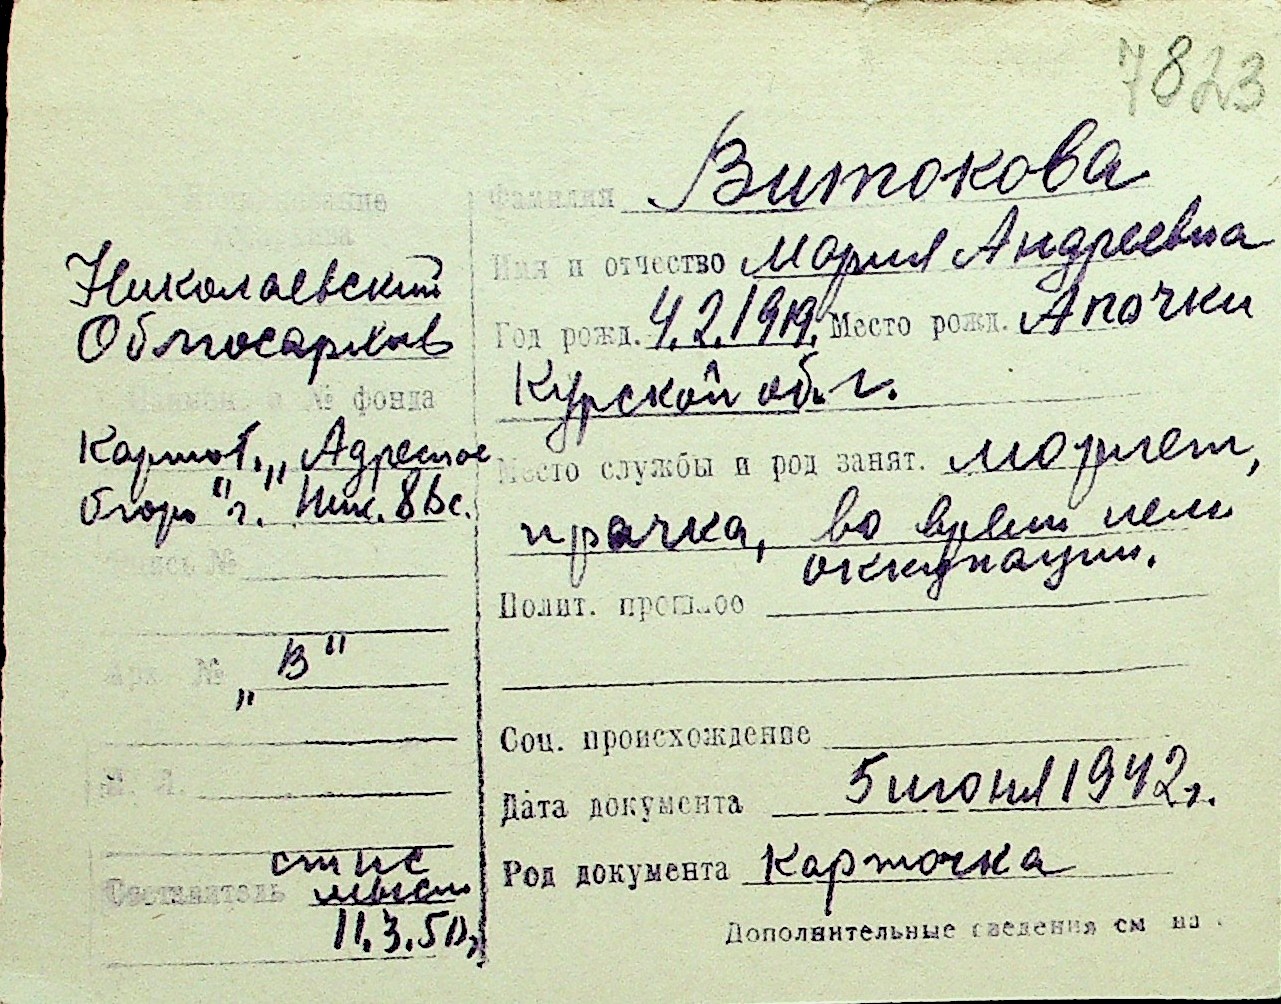 7823
Фамилия Витокова
Имя и отчество Мария Андреевна
Год рожд. 4.2.1919. Место рожд. Апочки
Курской об. г.
Место службы и род занят.
прачка, во время
оккупации.
Полит. прошлое
Соц. происхождение
Дата документа 5 июня 1942 г.
Род документа Карточка
Дополнительные сведения см на
Николаевский
Облгосархив
№ фонда
Картот. „Адресное
бюро" г. Ник.
Опись №
Арх. №
„В"
Составитель
11.3.50 г.